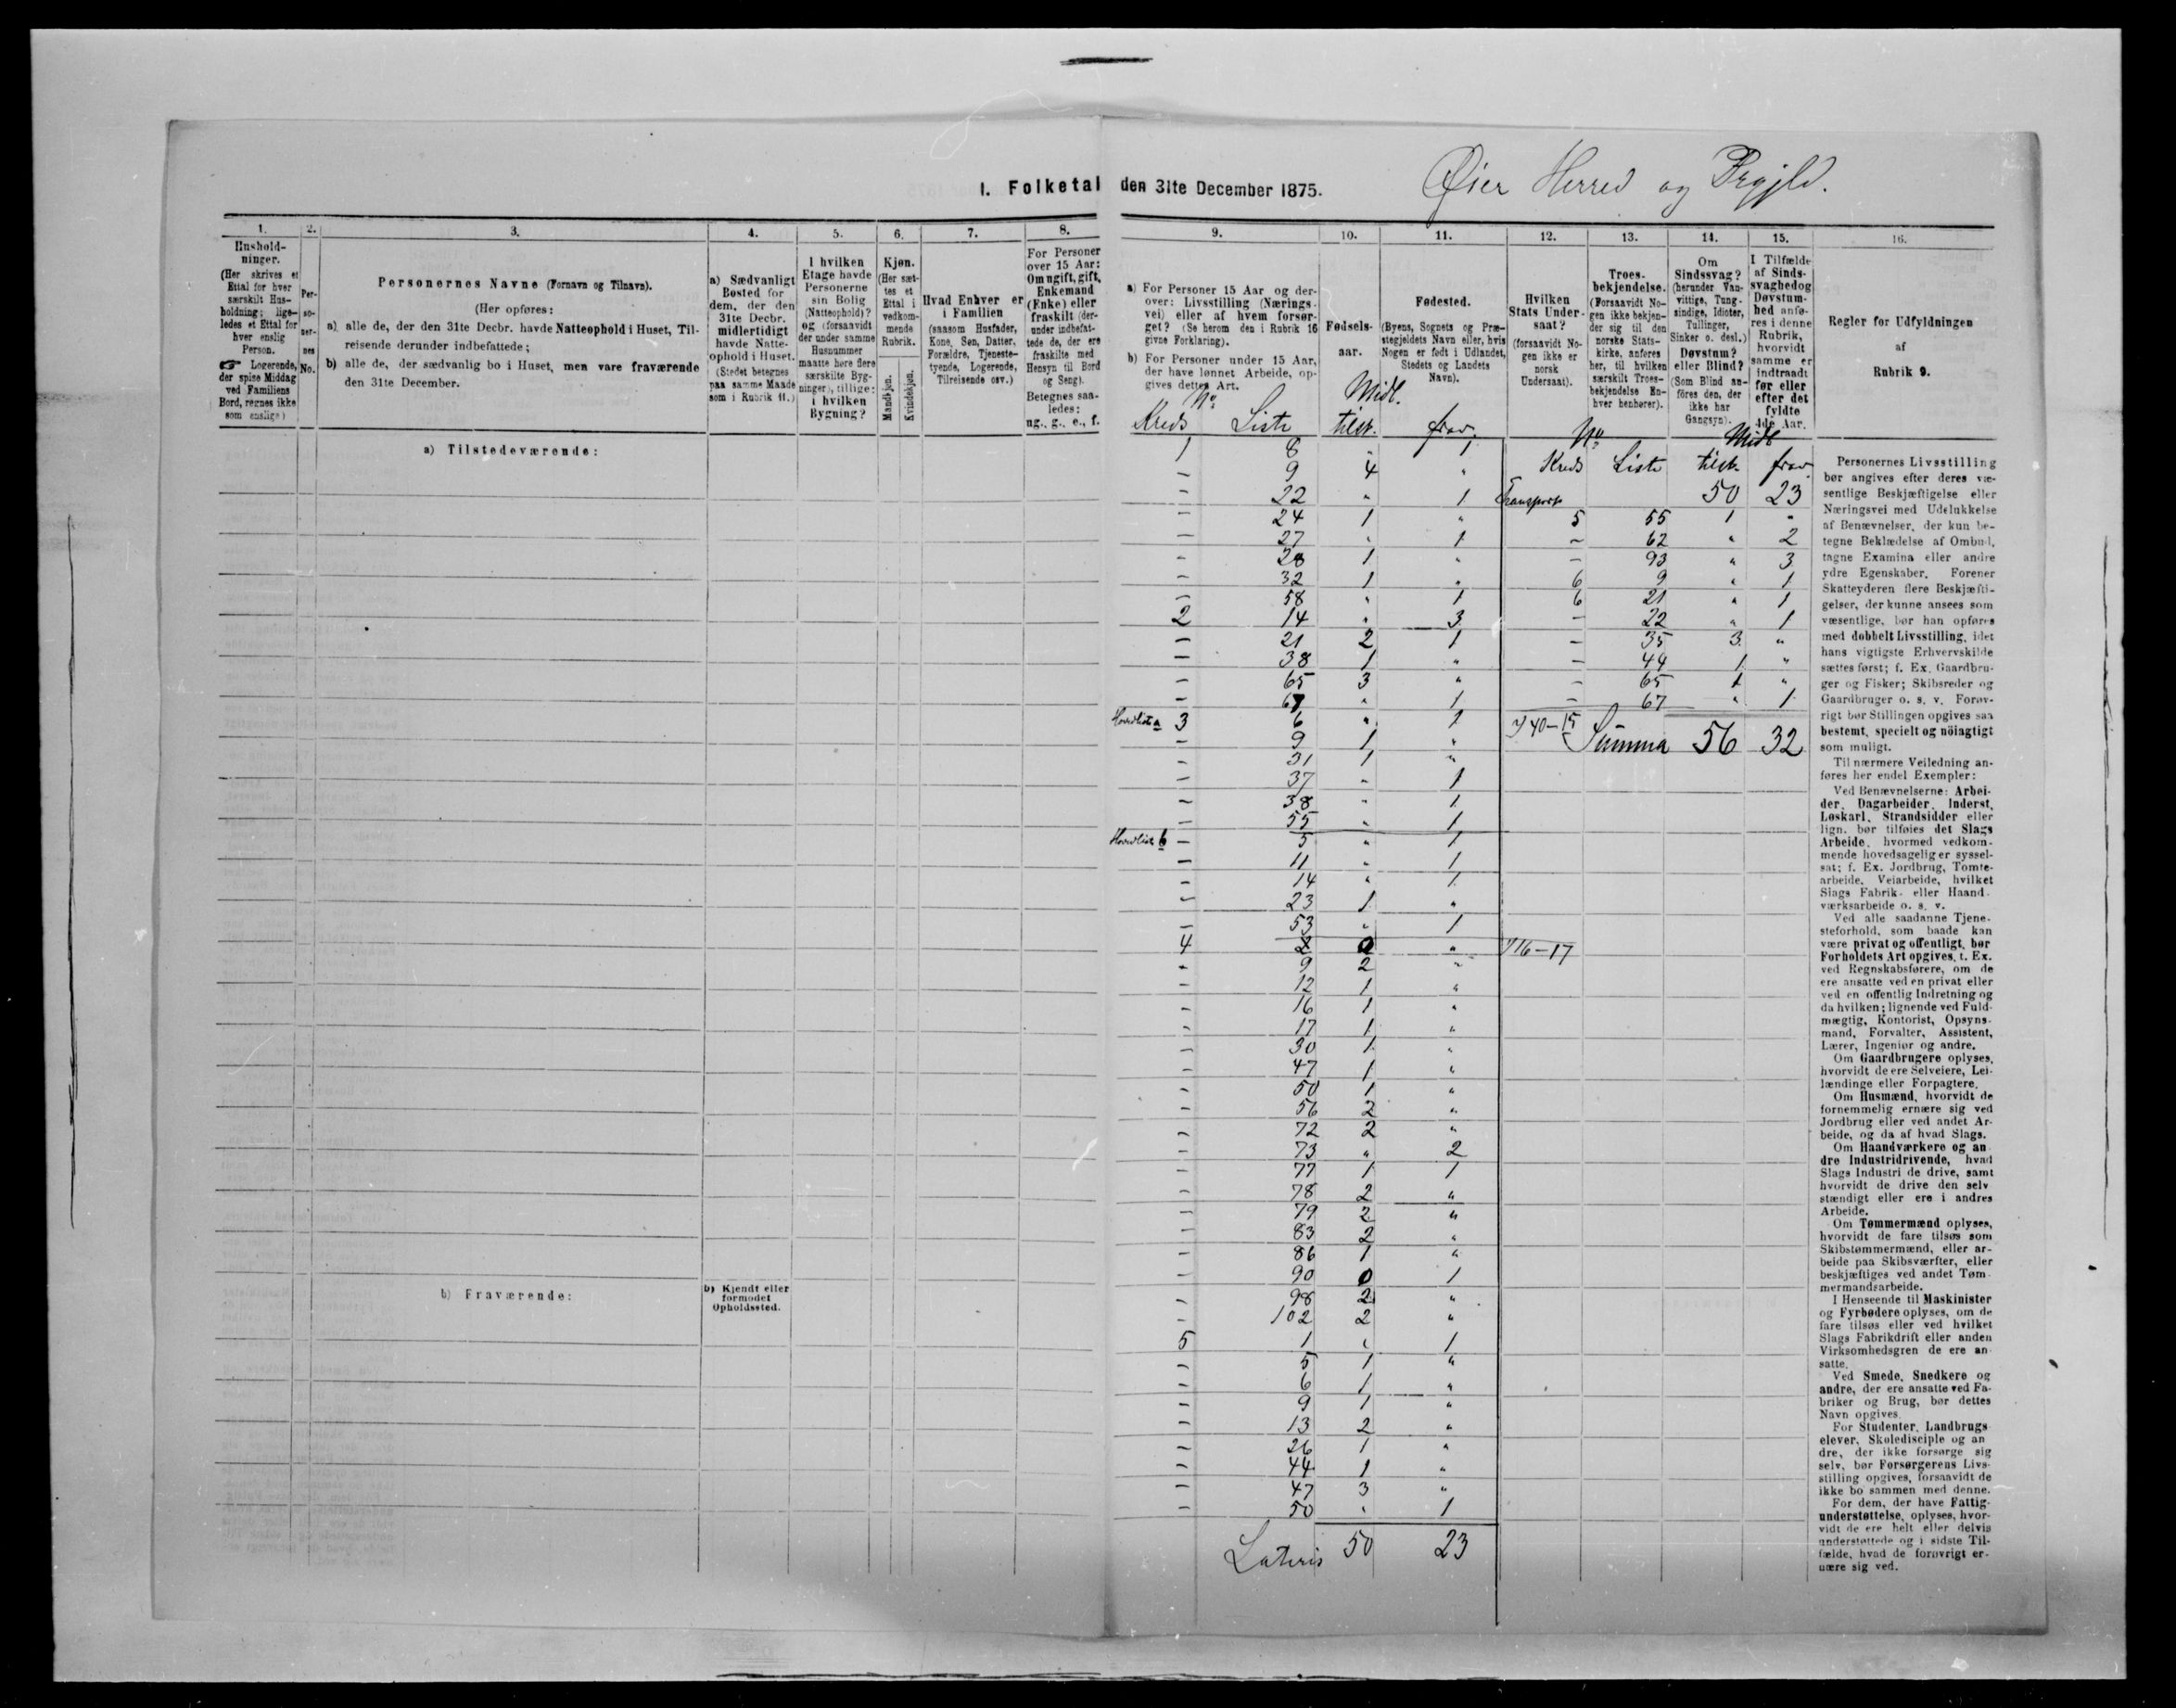 I. Folketal den 31te December 1875.
Øier Herred og Prgjld.
1.
Hushold-
ninger.
(Her skrives et
Ettal for hver
særskilt Hus-
holdning; lige-
ledes et Ettal for
hver enslig
Person.
☞ Logerende,
der spise Middag
ved Familiens
Bord, regnes ikke
som enslige)
2.
Per-
so-
ner-
nes
No.
3.
Personernes Navne (Fornavn og Tilnavn).
(Her opføres:
a) alle de, der den 31te Decbr. havde Natteophold i Huset, Til-
reisende derunder indbefattede;
b) alle de, der sædvanlig bo i Huset, men vare fraværende
den 31te December.
4.
a) Sædvanligt
Bosted for
dem, der den
31te Decbr.
midlertidigt
havde Natte-
ophold i Huset.
(Stedet betegnes
paa samme Maade
som i Rubrik 11.)
5.
I hvilken
Etage havde
Personerne
sin Bolig
(Natteophold)?
og (forsaavidt
der under samme
Husnummer
maatte høre flere
særskilte Byg-
ninger), tillige:
i hvilken
Bygning?
6.
Kjøn.
(Her sæt-
tes et
Ettal i
vedkom-
mende
Rubrik.
Mandkjøn.
Kvindekjøn.
7.
Hvad Enhver er
i Familien
(saasom Husfader,
Kone, Søn, Datter,
Forældre, Tjeneste-
tyende, Logerende,
Tilreisende osv.)
8.
For Personer
over 15 Aar:
Om ugift, gift,
Enkemand
(Enke) eller
fraskilt (der-
under indbefat-
tede de, der ere
fraskilte med
Hensyn til Bord
og Seng).
Betegnes saa-
ledes:
ug., g., e., f.
9.
a) For Personer 15 Aar og der-
over: Livsstilling (Nærings-
vei) eller af hvem forsør-
get? (Se herom den i Rubrik 16
givne Forklaring).
b) For Personer under 15 Aar,
der have lønnet Arbeide, op-
gives dettes Art.
10.
Fødsels-
aar.
11.
Fødested.
(Byens, Sognets og Præ-
stegjeldets Navn eller, hvis
Nogen er født i Udlandet,
Stedets og Landets
Navn).
12.
Hvilken
Stats Under-
saat?
(forsaavidt No-
gen ikke er
norsk
Undersaat).
13.
Troes-
bekjendelse.
(Forsaavidt No-
gen ikke bekjen-
der sig til den
norske Stats-
kirke, anføres
her, til hvilken
særskilt Troes-
bekjendelse En-
hver henhører).
14.
Om
Sindssvag?
(herunder Van-
vittige, Tung-
sindige, Idioter,
Tullinger,
Sinker o. desl.)
Døvstum?
eller Blind?
(Som Blind an-
føres den, der
ikke har
Gangsyn).
15.
I Tilfælde
af Sinds-
svaghed og
Døvstum-
hed anfø-
res i denne
Rubrik,
hvorvidt
samme er
indtraadt
før eller
efter det
fyldte
4de Aar.
16.
Regler for Udfyldningen
af
Rubrik 9.
a) Tilstedeværende:
b) Fraværende:
b) Kjendt eller
formodet
Opholdssted.
No Midl.
Kreds Liste tilst. frav.
1 8 „ 1
— 9 4 „
— 22 „ 1
— 24 1 „
— 27 „ 1
— 28 1 „
— 32 1 „
— 58 „ 1
2 14 „ 3
— 21 2 1
— 38 1 „
— 65 3 „
— 67 „ 1
Hovedliste a 3 6 „ 1
— 9 1 „
— 31 1 „
— 37 „ 1
— 38 „ 1
— 55 „ 1
Hovedliste b — 5 „ 1
— 11 „ 1
— 14 „ 1
— 23 1 „
— 53 „ 1
4 2 0 „
„ 9 2 „
— 12 1 „
— 16 1 „
— 17 1 „
— 30 1 „
— 47 1 „
— 50 1 „
— 56 2 „
— 72 2 „
— 73 „ 2
— 77 1 1
— 78 2 „
— 79 2 „
— 83 2 „
— 86 1 „
— 90 0 1
— 98 2 „
— 102 2 „
5 1 „ 1
— 5 1 „
— 6 1 „
— 9 1 „
— 13 2 „
— 26 1 „
— 44 1 „
— 47 3 „
— 50 „ 1
Lateris 50 23
No Midl
Kreds Liste tilst. frav.
Transport 50 23
5 55 1 „
— 62 „ 2
— 93 „ 3
6 9 „ 1
6 21 „ 1
— 22 „ 1
— 35 3 „
— 44 1 „
— 65 1 „
— 67 „ 1
40-15
Summa 56 32
16-17
Personernes Livsstilling
bør angives efter deres væ-
sentlige Beskjæftigelse eller
Næringsvei med Udelukkelse
af Benævnelser, der kun be-
tegne Beklædelse af Ombud,
tagne Examina eller andre
ydre Egenskaber. Forener
Skatteyderen flere Beskjæfti-
gelser, der kunne ansees som
væsentlige, bør han opføres
med dobbelt Livsstilling, idet
hans vigtigste Erhvervskilde
sættes først; f. Ex. Gaardbru-
ger og Fisker; Skibsreder og
Gaardbruger o. s. v. Forøv-
rigt bør Stillingen opgives saa
bestemt, specielt og nöiagtigt
som muligt.
Til nærmere Veiledning an-
føres her endel Exempler:
Ved Benævnelserne: Arbei-
der, Dagarbeider, Inderst,
Løskarl, Strandsidder eller
lign. bør tilføies det Slags
Arbeide, hvormed vedkom-
mende hovedsagelig er syssel-
sat; f. Ex. Jordbrug, Tomte-
arbeide, Veiarbeide, hvilket
Slags Fabrik- eller Haand-
værksarbeide o. s. v.
Ved alle saadanne Tjene-
steforhold, som baade kan
være privat og offentligt, bør
Forholdets Art opgives, t. Ex.
ved Regnskabsførere, om de
ere ansatte ved en privat eller
ved en offentlig Indretning og
da hvilken; lignende ved Fuld-
mægtig, Kontorist, Opsyns-
mand, Forvalter, Assistent,
Lærer, Ingeniør og andre.
Om Gaardbrugere oplyses,
hvorvidt de ere Selveiere, Lei-
lændinge eller Forpagtere.
Om Husmænd, hvorvidt de
fornemmelig ernære sig ved
Jordbrug eller ved andet Ar-
beide, og da af hvad Slags.
Om Haandværkere og an-
dre Industridrivende, hvad
Slags Industri de drive, samt
hvorvidt de drive den selv-
stændigt eller ere i andres
Arbeide.
Om Tømmermænd oplyses,
hvorvidt de fare tilsøs som
Skibstømmermænd, eller ar-
beide paa Skibsværfter, eller
beskjæftiges ved andet Tøm-
mermandsarbeide.
I Henseende til Maskinister
og Fyrbødere oplyses, om de
fare tilsøs eller ved hvilket
Slags Fabrikdrift eller anden
Virksomhedsgren de ere an-
satte.
Ved Smede, Snedkere og
andre, der ere ansatte ved Fa-
briker og Brug, bør dettes
Navn opgives.
For Studenter, Landbrugs-
elever, Skoledisciple og an-
dre, der ikke forsørge sig
selv, bør Forsørgerens Livs-
stilling opgives, forsaavidt de
ikke bo sammen med denne.
For dem, der have Fattig-
understøttelse, oplyses, hvor-
vidt de ere helt eller delvis
understøttede og i sidste Til-
fælde, hvad de forøvrigt er-
nære sig ved.